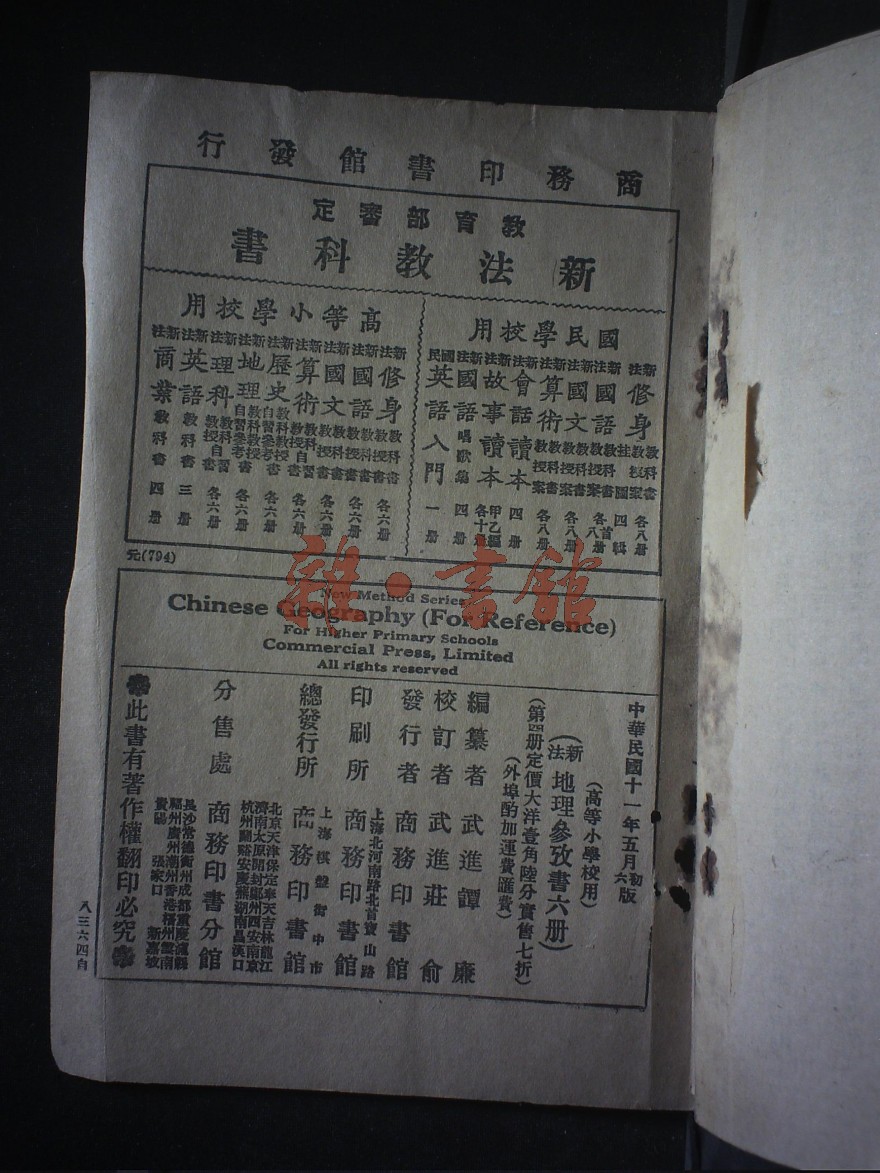 商務印書館發行
教育部審定
新法教科書
國民學校用
新法修身教科書教授案各八册
新法國語教科書教授案各首八册
新法國文教科書教授書各八册
新法算術教科書教授案各八册
新法會話讀本四册
新法故事讀本甲乙編各十册
新法國語唱歌集四册
國民英語入門一册
高等小學校用
新法修身教科書教授書各六册
新法國語教科書教授書各六册
新法國文教科書教授書各六册
新法算術教科自習教授書各六册
新法歷史教科教授自習參考書各六册
新法地理教科教授自習參考書各六册
新法理科教科自習教授書各六册
新法英語教科書三册
新法商業教科書四册
元(794)
雜·書館
New Method Series
Chinese Geography (For Reference)
For Higher Primary Schools
Commercial Press, Limited
All rights reserved
中華民國十一年五月初六版
(高等小學校用)
(新法地理參攷書六册)
(第四册定價大洋壹角陸分實售七折)
(外埠酌加運費匯費)
編纂者 武進譚廉
校訂者 武進莊俞
發行者 商務印書館
印刷所 上海北河南路北首寶山路 商務印書館
總發行所 上海棋盤街中市 商務印書館
分售處 北京天津保定奉天吉林龍江
濟南太原開封鄭州西安南京
杭州蘭谿安慶蕪湖南昌漢口
商務印書分館
長沙常德衡州成都重慶瀘縣
福州廣州潮州香港梧州雲南
貴陽 張家口 新嘉坡
此書有著作權翻印必究
八三六四自